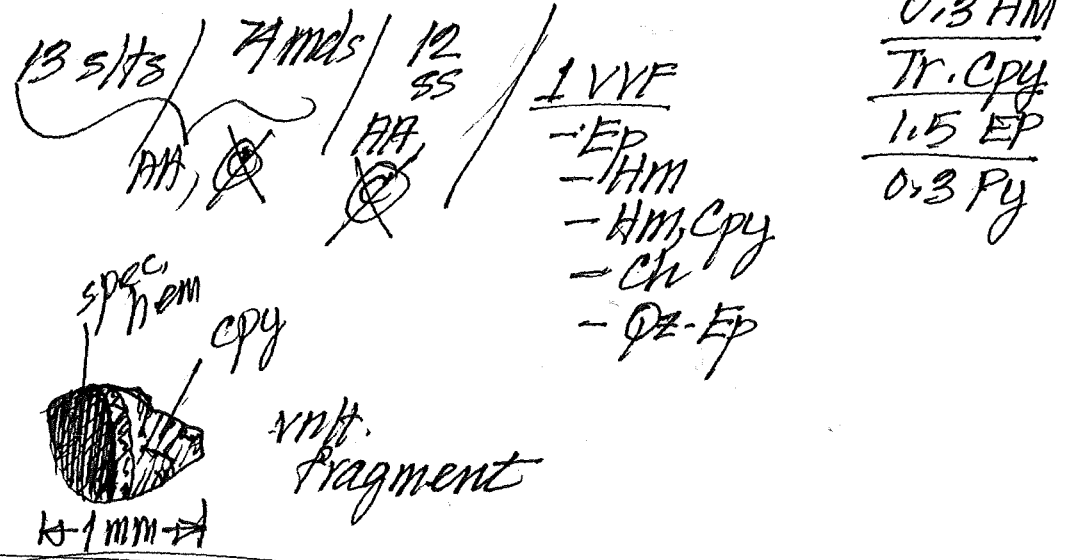 13 slts / 74 mds / 12 ss /
AA, C
AA, C
1 VVF
- Ep
- Hm
- Hm, Cpy
- Ch
- Qz-Ep
0.3 HM
Tr. Cpy
1.5 EP
0.3 Py
spec. hem
cpy
vnlt.
fragment
1 mm